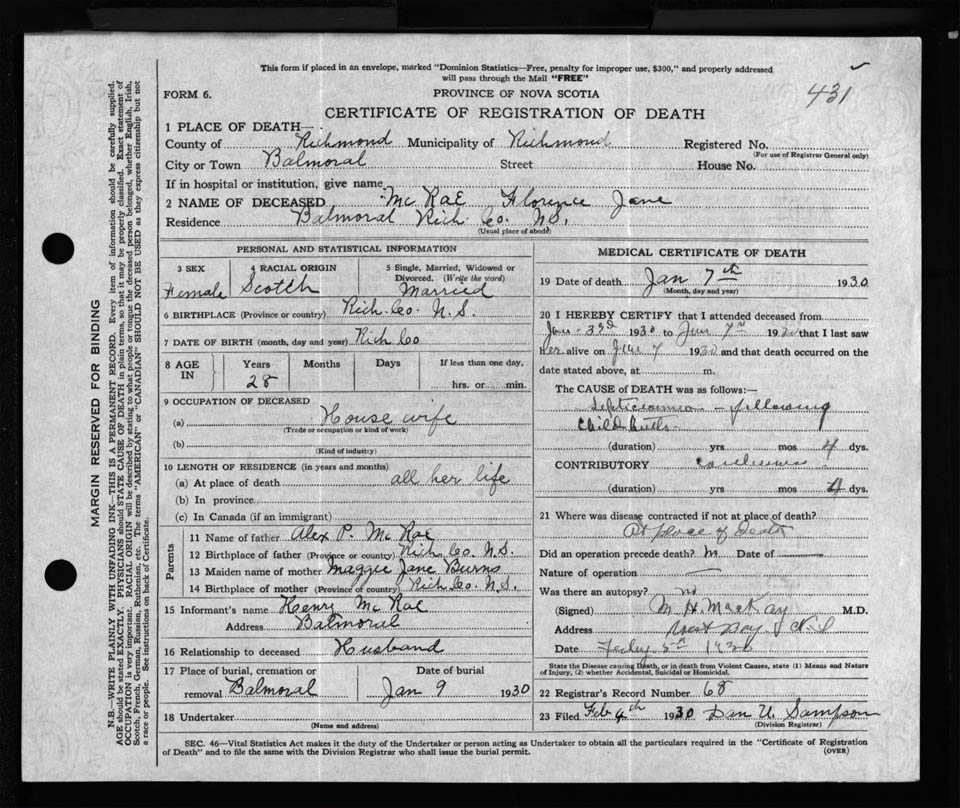 This form if placed in an envelope, marked "Dominion Statistics—Free, penalty for improper use, $300," and properly addressed
will pass through the Mail "FREE"
431
FORM 6.
PROVINCE OF NOVA SCOTIA
CERTIFICATE OF REGISTRATION OF DEATH
1 PLACE OF DEATH—
County of Richmond Municipality of Richmond Registered No.
(For use of Registrar General only)
City or Town Balmoral Street House No.
If in hospital or institution, give name
2 NAME OF DECEASED McRae Florence Jane
Residence Balmoral Rich. Co. N.S.
(Usual place of abode)
PERSONAL AND STATISTICAL INFORMATION
3 SEX
Female
4 RACIAL ORIGIN
Scotch
5 Single, Married, Widowed or
Divorced. (Write the word)
Married
6 BIRTHPLACE (Province or country) Rich. Co. N.S.
7 DATE OF BIRTH (month, day and year) Rich Co
8 AGE
IN
Years
28
Months
Days
If less than one day,
hrs. or min.
9 OCCUPATION OF DECEASED
(a) House wife
(Trade or occupation or kind of work)
(b)
(Kind of industry)
10 LENGTH OF RESIDENCE (in years and months)
(a) At place of death all her life
(b) In province
(c) In Canada (if an immigrant)
Parents
11 Name of father Alex P. McRae
12 Birthplace of father (Province or country) Rich. Co. N.S.
13 Maiden name of mother Maggie Jane Burns
14 Birthplace of mother (Province or country) Rich. Co. N.S.
15 Informant's name Henry McRae
Address Balmoral
16 Relationship to deceased Husband
17 Place of burial, cremation or
removal Balmoral
Date of burial
Jan 9 1930
18 Undertaker
(Name and address)
MEDICAL CERTIFICATE OF DEATH
19 Date of death Jan 7th 1930
(Month, day and year)
20 I HEREBY CERTIFY that I attended deceased from
Jan 3rd 1930 to Jan 7th 1930 that I last saw
her alive on Jan 7 1930 and that death occurred on the
date stated above, at m.
The CAUSE OF DEATH was as follows:—
Septicaemia — following
Child birth
(duration) yrs mos 4 dys.
CONTRIBUTORY
(duration) yrs mos 4 dys.
21 Where was disease contracted if not at place of death?
At place of Death
Did an operation precede death? Date of
Nature of operation
Was there an autopsy? no
(Signed) M. H. MacKay M.D.
Address West Bay, N.S
Date 1930
State the Disease causing Death, or in death from Violent Causes, state (1) Means and Nature
of Injury, (2) whether Accidental, Suicidal or Homicidal.
22 Registrar's Record Number 68
23 Filed Feb 4th 1930 Dan U. Sampson
(Division Registrar)
SEC. 46—Vital Statistics Act makes it the duty of the Undertaker or person acting as Undertaker to obtain all the particulars required in the "Certificate of Registration
of Death" and to file the same with the Division Registrar who shall issue the burial permit.
(OVER)
MARGIN RESERVED FOR BINDING
N.B.—WRITE PLAINLY WITH UNFADING INK—THIS IS A PERMANENT RECORD. Every item of information should be carefully supplied.
AGE should be stated EXACTLY. PHYSICIANS should STATE CAUSE OF DEATH in plain terms, so that it may be properly classified. Exact statement of
OCCUPATION is very important. RACIAL ORIGIN will be described by stating to what people or tongue the deceased person belonged, whether English, Irish,
Scotch, French, German, Russian, Ruthenian, etc. The terms "AMERICAN" or "CANADIAN" SHOULD NOT BE USED as they express citizenship but not
a race or people. See instructions on back of Certificate.